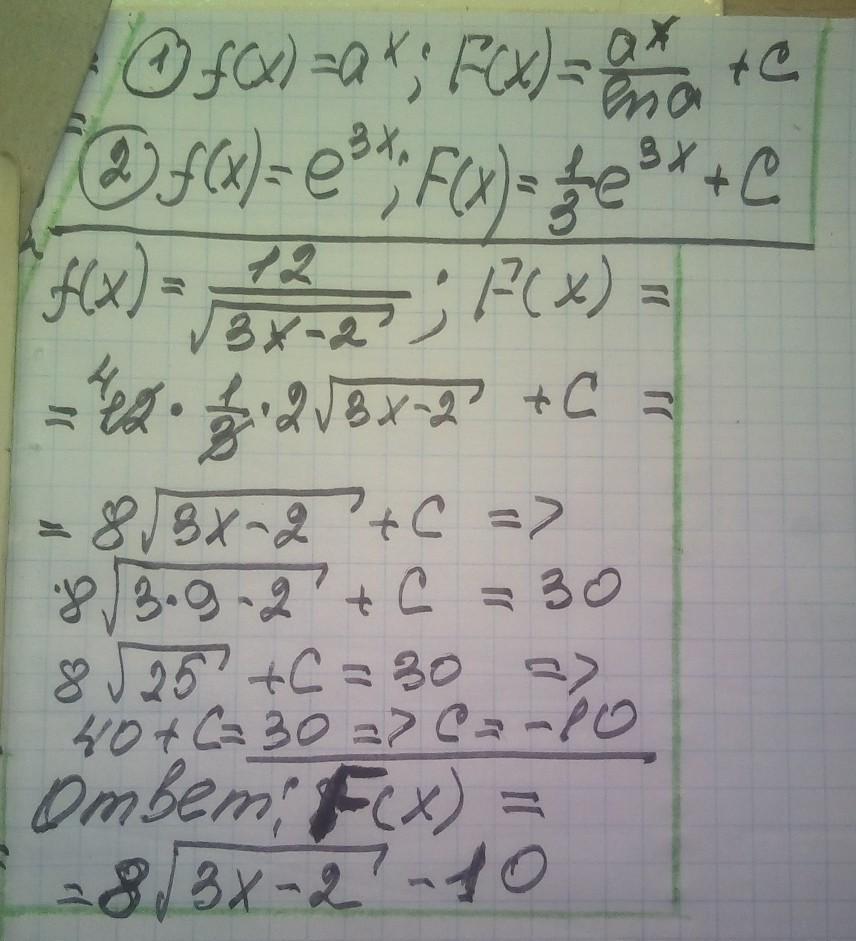 ① f(x) = a^x; F(x) = a^x/ln a + C
② f(x) = e^3x; F(x) = 1/3 e^3x + C
f(x) = 12/√(3x-2); F(x) =
= 12 · 1/3 · 2√(3x-2) + C =
= 8√(3x-2) + C =>
8√(3·9-2) + C = 30
8√25 + C = 30 =>
40 + C = 30 => C = -10
Ответ: F(x) =
= 8√(3x-2) - 10